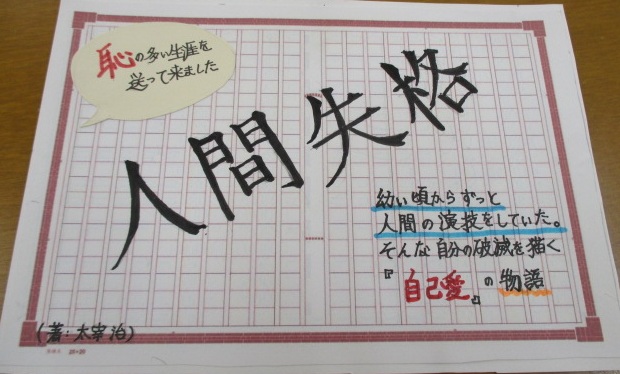 恥の多い生涯を
送って来ました
人間失格
幼い頃からずっと
人間の演技をしていた。
そんな自分の破滅を描く
『自己愛』の物語
(著:太宰治)